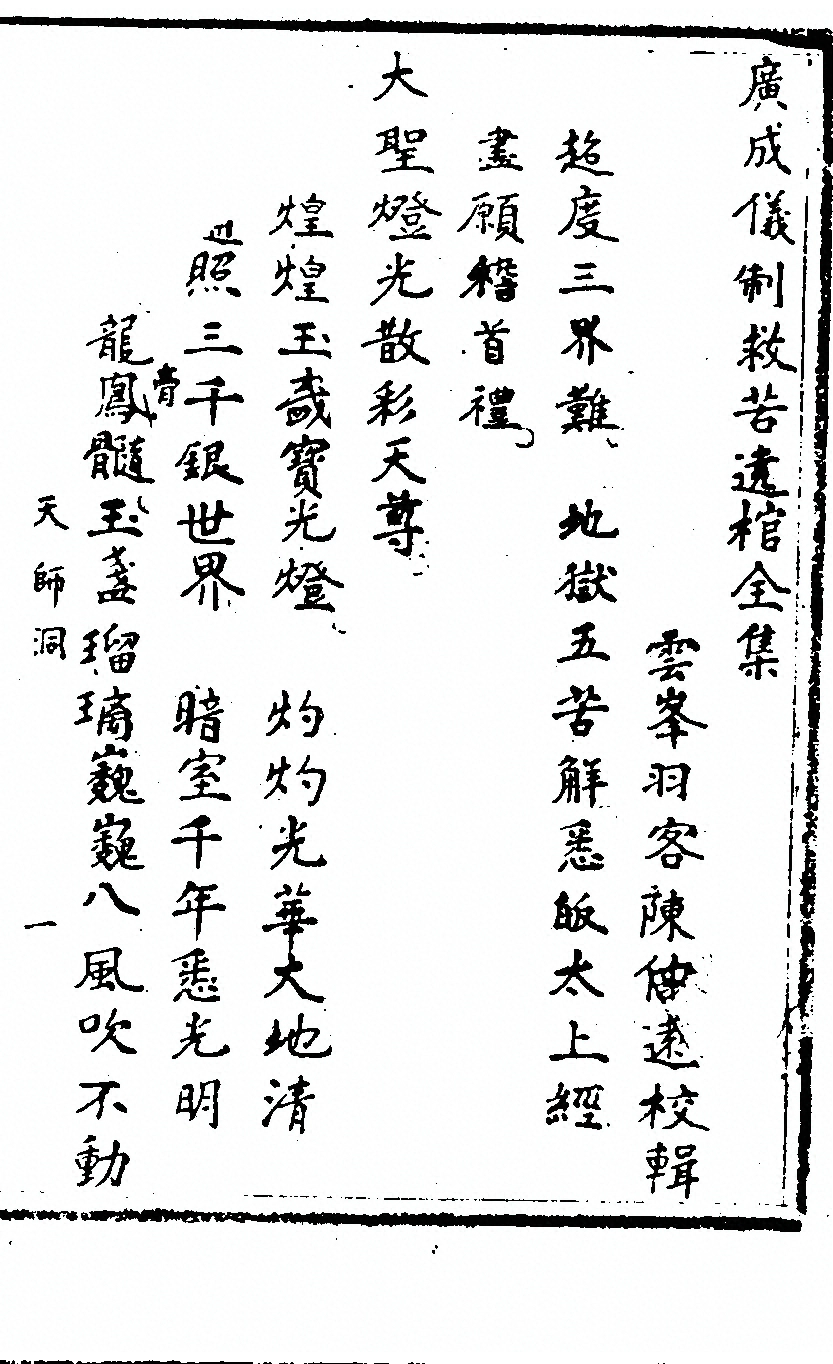 廣成儀制救苦遶棺全集
雲峯羽客陳仲遠校輯
超度三界難 地獄五苦解悉皈太上經
盡願稽首禮
大聖燈光散彩天尊
煌煌玉㦲寶光燈 灼灼光華大地清
近照三千銀世界 暗室千年悉光明
龍鳳膏髓玉盞瑠璃巍巍八風吹不動
天師洞
一